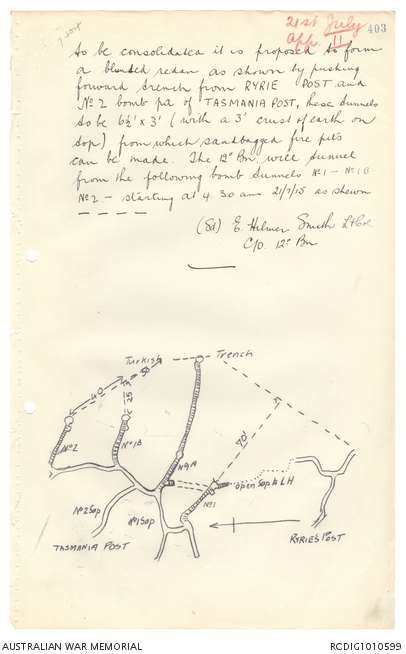 21st July
App. 11
403
To be consolidated it is proposed to form
a blunted redan as shown by pushing
forward trench from RYRIE POST and
No 2 bomb pit of TASMANIA POST, these tunnels
to be 6½' x 3' (with a 3' crust of earth on
top) from which sandbagged fire pits
can be made. The 12th Bn. will tunnel
from the following bomb tunnels No 1 - No 1B
No 2 - starting at 4.30 am 21/7/15 as shewn
(Sd) E. Hilmer Smith Lt Col
C/O. 12th Bn
Turkish Trench
40
50
25
No 2
No 1B
No 1A
70'
open Sap to LH
No 1
No 2 Sap
No 1 Sap
TASMANIA POST
RYRIES POST
AUSTRALIAN WAR MEMORIAL
RCDIG1010599